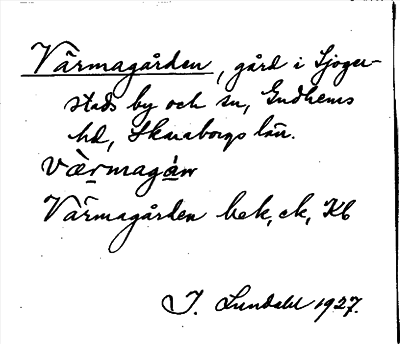 Värmagården, gård i Sjoger-
stads by och sn, Gudhems
hd, Skaraborgs län.
Värmagården bek, ek, Kb
I. Lundahl 1927.